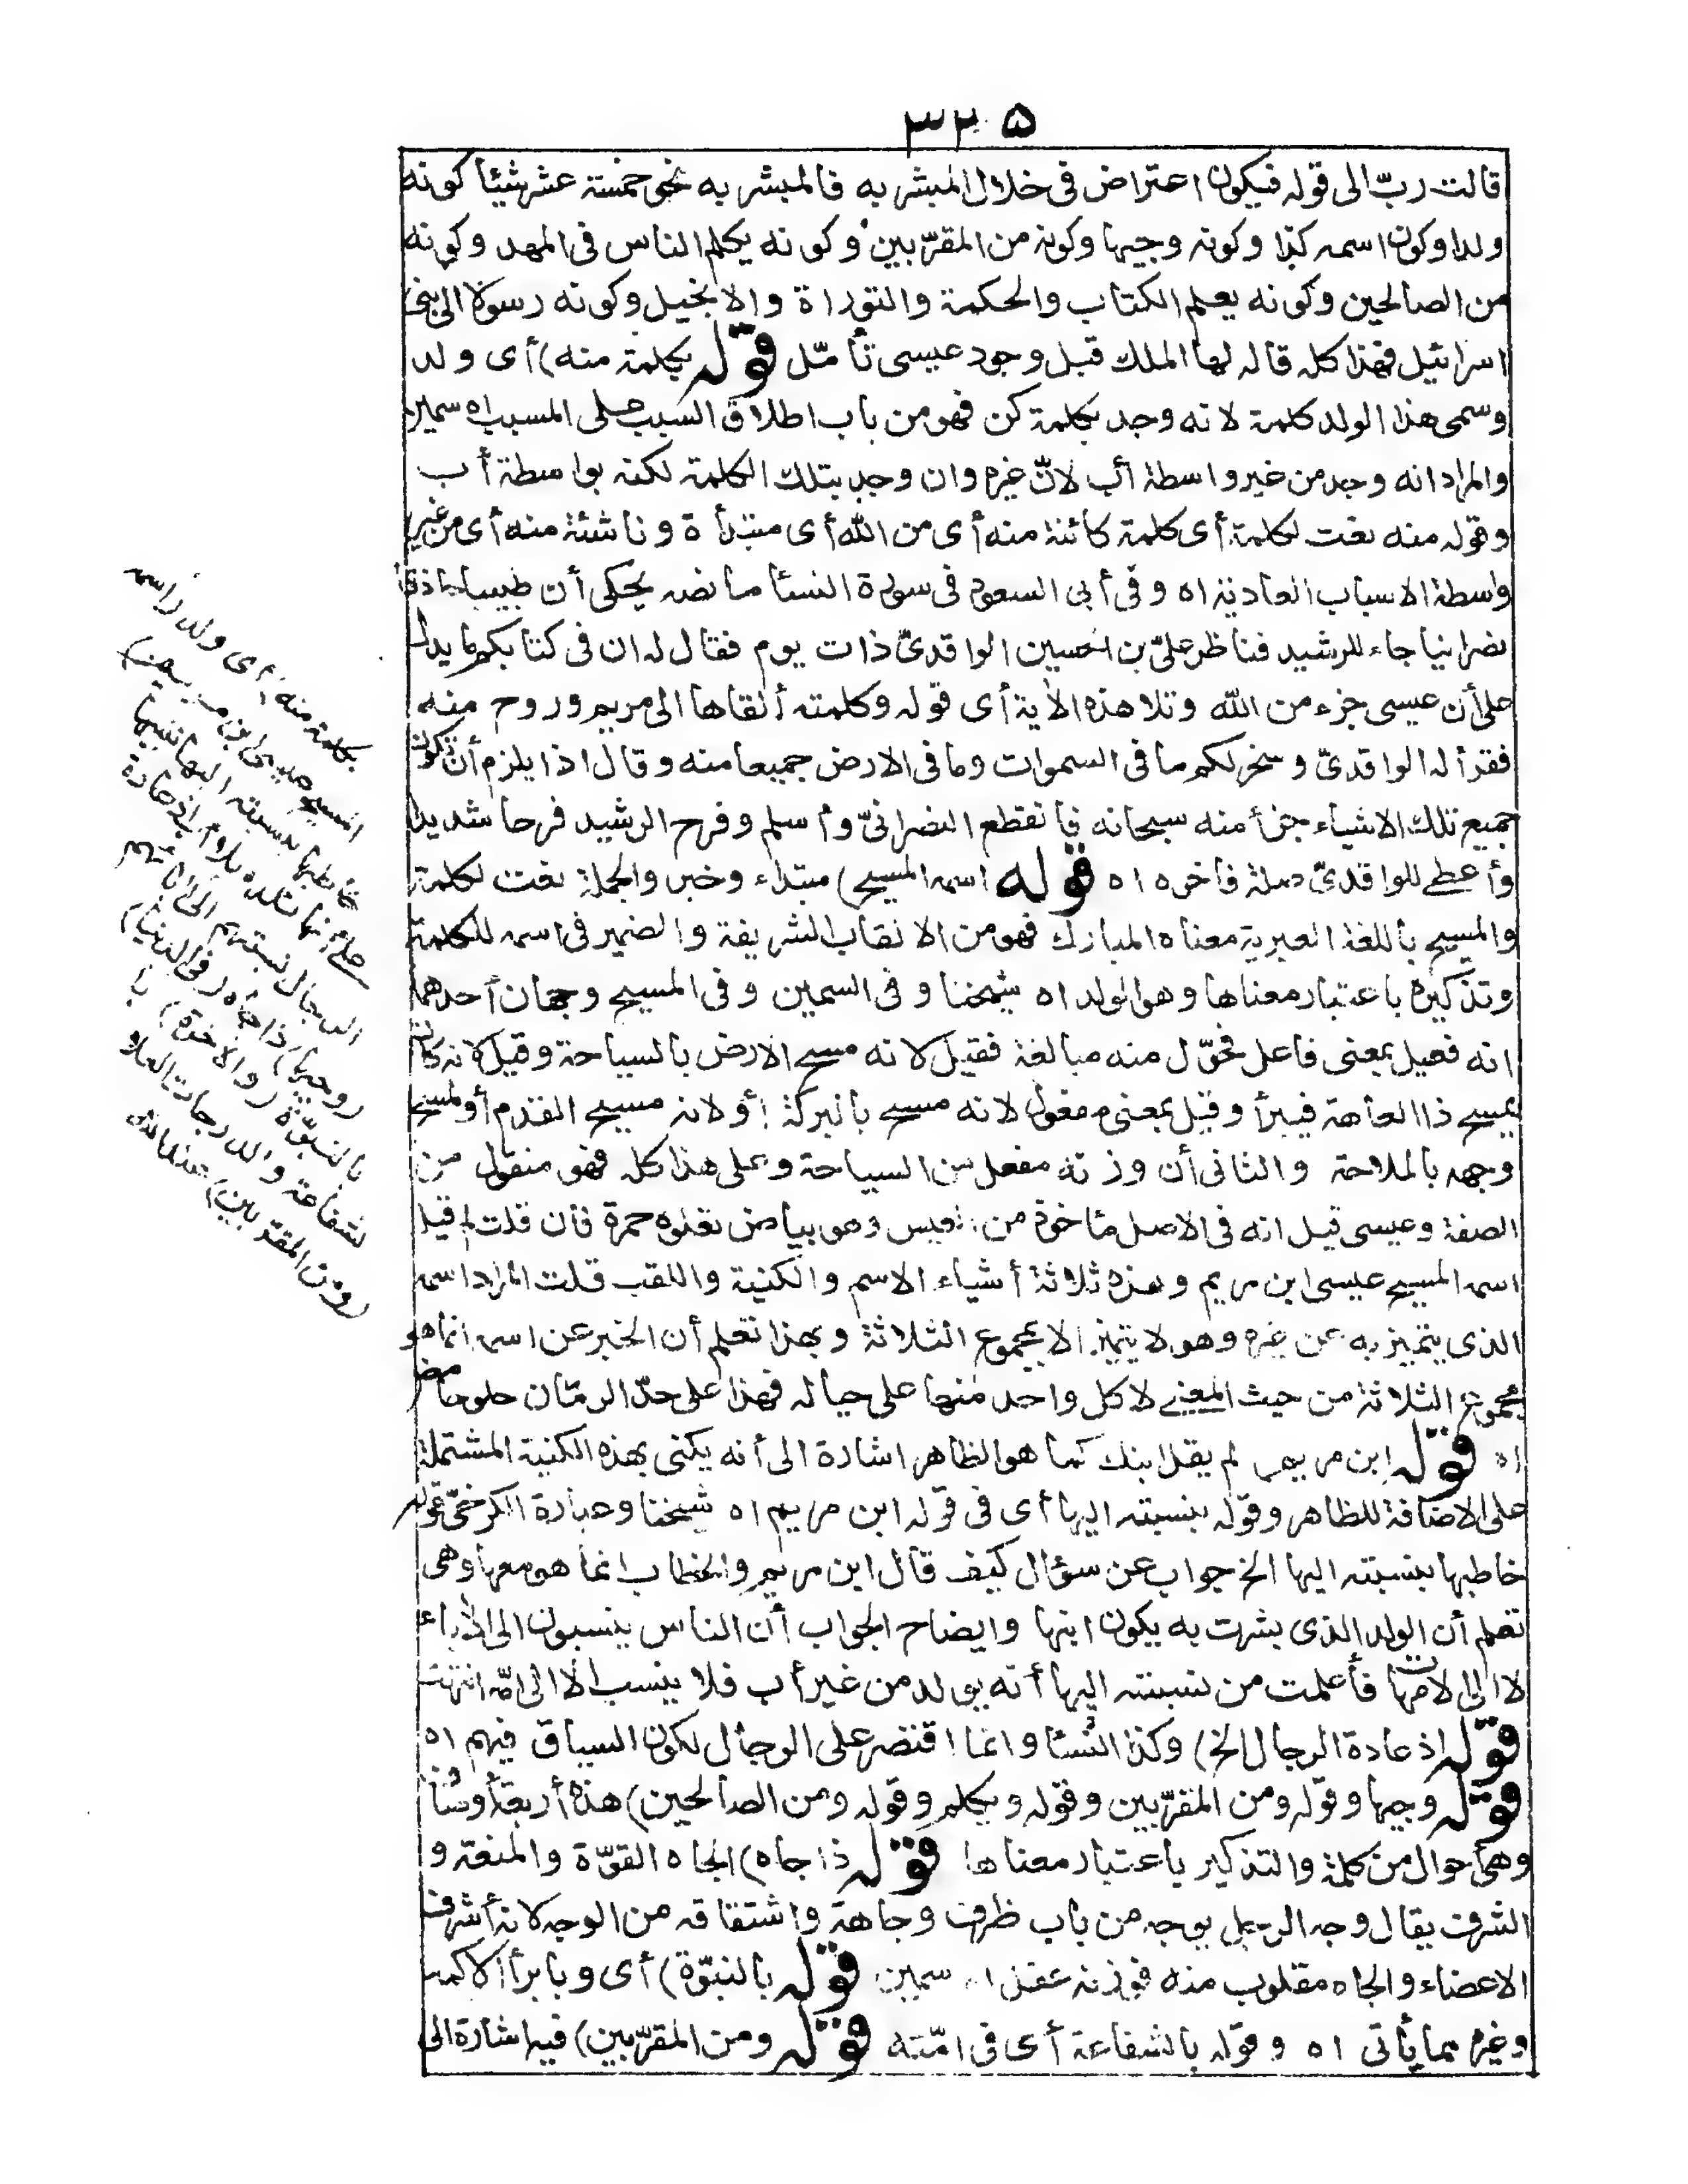 ٣٢٥
قالت رب الى قوله فيكون اعتراض فى خلال المبشر به فالمبشر به نحو خمسة عشر شيئا كونه
ولدا وكون اسمه كذا وكونه وجيها وكونه من المقرّبين وكونه يكلم الناس فى المهد وكونه
من الصالحين وكونه يعلم الكتاب والحكمة والتوراة والانجيل وكونه رسولا الى بنى
اسرائيل فهذا كله قاله لها الملك قبل وجود عيسى تأمّل قوله بكلمة منه) أى ولد
وسمى هذا الولد كلمة لانه وجد بكلمة كن فهو من باب اطلاق السبب على المسبب اه سمين
والمراد انه وجد من غير واسطة أب لانّ غيره وان وجد بتلك الكلمة لكنه بواسطة أب
وقوله منه نعت لكلمة أى كلمة كائنة منه أى من الله أى مبتدأة وناشئة منه أى من غير
واسطة الاسباب العادية اه وفى أبى السعود فى سورة النساء ما نصه يحكى أن طبيبا حاذقا
نصرانيا جاء للرشيد فناظر علىّ بن الحسين الواقدىّ ذات يوم فقال له ان فى كتابكم ما يدل
على أن عيسى جزء من الله وتلا هذه الآية أى قوله وكلمته ألقاها الى مريم وروح منه
فقرأ له الواقدىّ وسخر لكم ما فى السموات وما فى الارض جميعا منه وقال اذا يلزم أن تكون
جميع تلك الاشياء جزأ منه سبحانه فانقطع النصرانىّ وأسلم وفرح الرشيد فرحا شديدا
وأعطى للواقدىّ صلة فاخره اه قوله اسمه المسيح) مبتداء وخبر والجملة نعت لكلمة
والمسيح باللغة العبرية معناه المبارك فهو من الالقاب الشريفة والضمير فى اسمه للكلمة
وتذكيره باعتبار معناها وهو الولد اه شيخنا وفى السمين وفى المسيح وجهان أحدهما
انه فعيل بمعنى فاعل فحوّل منه مبالغة فقيل لانه مسح الارض بالسياحة وقيل لانه كان
يمسح ذا العاهة فيبرأ وقيل بمعنى مفعول لانه مسح بالبركة أو لانه مسيح القدم أو لمسح
وجهه بالملاحة والثانى أن وزنه مفعل من السياحة وعلى هذا كله فهو منقول من
الصفة وعيسى قيل انه فى الاصل مأخوذ من العيس وهو بياض تعلوه حمرة فان قلت لم قيل
اسمه المسيح عيسى ابن مريم وهذه ثلاثة أشياء الاسم والكنية واللقب قلت المراد اسمه
الذى يتميز به عن غيره وهو لا يتميز الا بمجموع الثلاثة وبهذا تعلم أن الخبر عن اسمه انما هو
مجموع الثلاثة من حيث المعنى لا كل واحد منها على حياله فهذا على حدّ الرمّان حلو حامض
اه قوله ابن مريم لم يقل ابنك كما هو الظاهر اشارة الى أنه يكنى بهذه الكنية المشتملة
على الاضافة للظاهر وقوله بنسبته اليها أى فى قوله ابن مريم اه شيخنا وعبارة الكرخىّ قوله
خاطبها بنسبته اليها الخ جواب عن سؤال كيف قال ابن مريم والخطاب انما هو معها وهى
تعلم أن الولد الذى بشرت به يكون ابنها وايضاح الجواب أن الناس ينسبون الى الآباء
لا الى الامهات فأعلمت من نسبته اليها أنه يولد من غير أب فلا ينسب الا الى امّه انتهت
قوله اذ عادة الرجال الخ) وكذا النساء وانما اقتصر على الرجال لكون السياق فيهم اه
قوله وجيها وقوله ومن المقرّبين وقوله ويكلم وقوله ومن الصالحين) هذه أربعة
وهى أحوال من كلمة والتذكير باعتبار معناها قوله ذا جاه) الجاه القوّة والمنعة و
الشرف يقال وجه الرجل يوجه من باب ظرف وجاهة واشتقاقه من الوجه لانه أشرف
الاعضاء والجاه مقلوب منه فوزنه عفل اه سمين قوله بالنبوّة) أى وبابرأ الاكمه
وغيره مما يأتى اه وقوله بالشفاعة أى فى امّته قوله ومن المقرّبين) فيه اشارة الى
بكلمة منه) أى ولد (اسمه
المسيح عيسى ابن مريم)
خاطبها بنسبته اليها تنبيها
على أنها تلده بلا أب اذ عادة
الرجال نسبتهم الى آبائهم
(وجيها) ذا جاه (فى الدنيا)
بالنبوّة (والآخرة) با
لشفاعة والدرجات العلا و
(ومن المقرّبين) عند الله